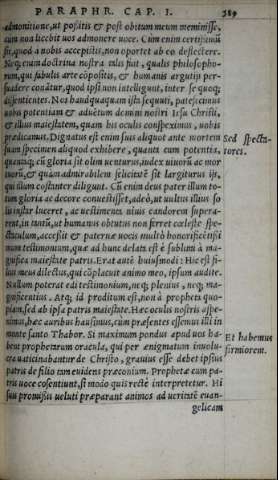 PARAPHR. CAP. I. 389
admonitione, ut positis & post obitum meum meminisse,
cum nos licebit uos admonere uoce. Cùm enim certissimũ
sit, quod à nobis accepistis, non oportet ab eo deflectere.
Neq; enim doctrina nostra talis fuit, qualis philosopho-
rum, qui fabulis arte cõpositis, & humanis argutijs per-
suadere conãtur, quod ipsi non intelligunt, inter se quoq;
dissentientes. Nos haudquaquam istos sequuti, patefecimus
uobis potentiam & aduẽtum domini nostri Iesu Christi,
& illius maiestatem, quam his oculis conspeximus, uobis
prædicamus. Dignatus est enim suis aliquot ante mortem
suam specimen aliquod exhibere, quanta cum potentia,
quantaq; cũ gloria sit olim uenturus, iudex uiuorũ ac mor
tuorũ, & quàm admirabilem felicitatẽ sit largiturus ijs,
qui illum constanter diligunt. Cũ enim deus pater illum to-
tum gloria ac decore conuestisset, adeò, ut uultus illius so
lis instar luceret, ac uestimenta niuis candorem supera-
rent, in tantũ, ut humanus obtutus non ferret cœleste spe-
ctaculum, accessit & paternæ uocis multò honorificẽtissi
mum testimonium, quæ ad hunc delata est è sublimi à ma-
gnifica maiestate patris. Erat autẽ huiusmodi: Hic est fi-
lius meus dilectus, qui cõplacuit animo meo, ipsum audite.
Nullum poterat edi testimonium, neq; plenius, neq; ma-
gnificentius. Atq; id proditum est, non à propheta quo-
piam, sed ab ipsa patris maiestate. Hæc oculis nostris aspe-
ximus, hæc auribus hausimus, cùm præsentes essemus illi in
monte sancto Thabor. Si maximum pondus apud uos ha-
bent prophetarum oracula, qui per ænigmatum inuolu-
cra uaticinabantur de Christo, grauius esse debet ipsius
patris de filio tam euidens præconium. Prophetæ cum pa-
tris uoce cõsentiunt, si modo quis rectè interpretetur. Hi
suis promissis ueluti præparant animos ad ueritatẽ euan-
gelicam
Sed specta-
tores.
Et habemus
firmiorem.